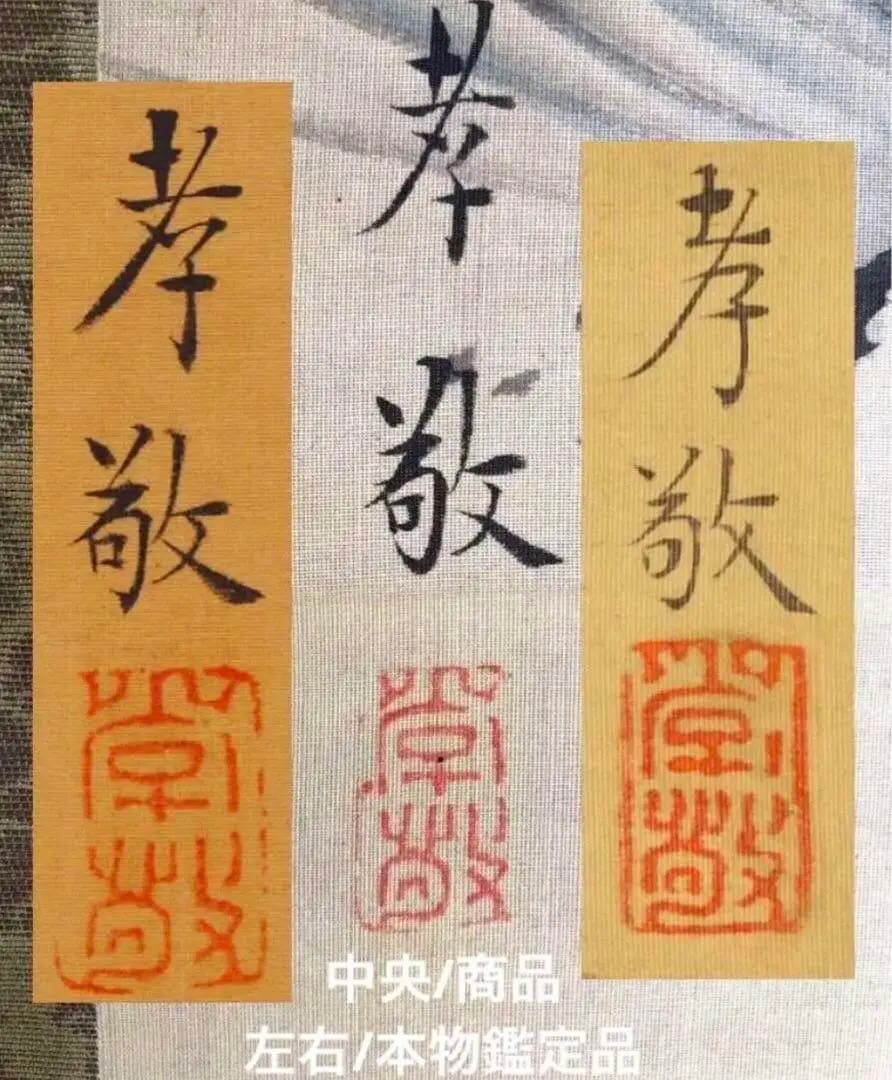 孝敬
孝敬
孝敬
中央/商品
左右/本物鑑定品